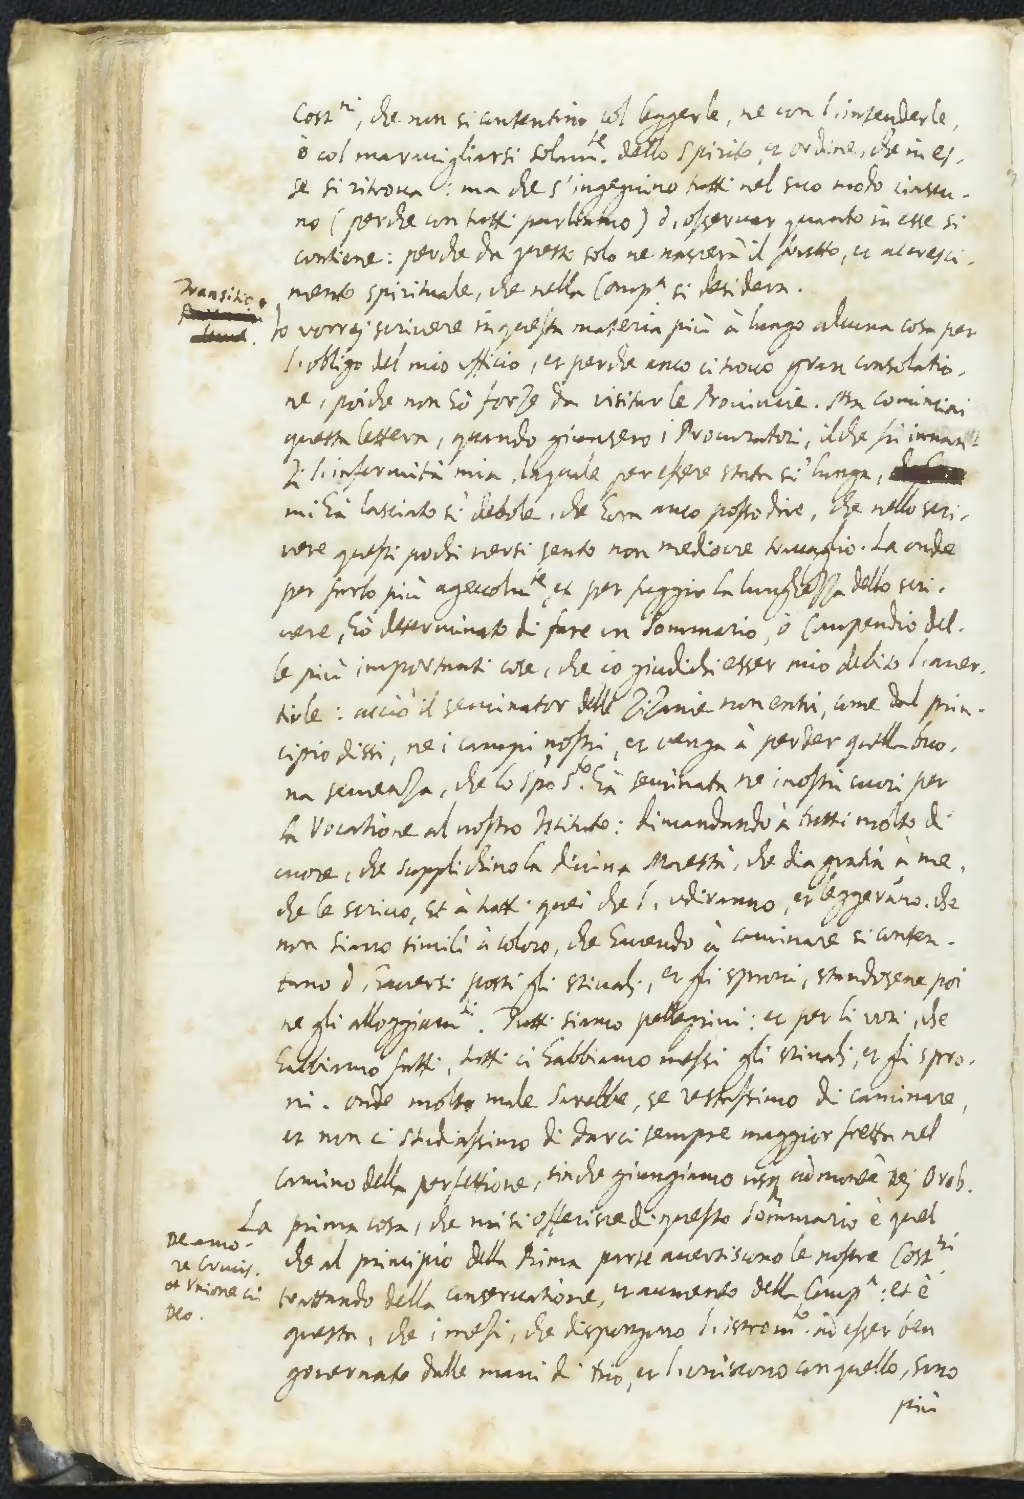 Cost.ni, che non si contentino col leggerle, ne con l'intenderle,
ò col maravigliarsi solam.te dello spirito, et ordine, che in es-
se si ritroua: ma che s'ingegnino tutti nel suo modo ciascu-
no (perche con tutti parliamo) d'osservar quanto in esse si
contiene: perche da questo solo ne nascerà il frutto, et accresci-
mento spirituale, che nella Comp.a si desidera.
Transitio.
Io vorrej scrivere in questa materia più à lungo alcuna cosa per
l'obligo del mio ufficio, et perche anco ci trovo gran consolatio-
ne, poiche non hò forze da visitar le Provincie. Ma cominciai
questa lettera, quando giunsero i Procuratori, il che fù innan-
zi l'infermità mia, laquale per essere stata sì lunga,
mi hà lasciato sì debole, che hora anco posso dire, che nello scri-
vere questi pochi versi sento non mediocre travaglio. La onde
per farlo più agevolm.te, et per fuggir la lunghezza dello scri-
vere, hò determinato di fare un Sommario, ò Compendio del-
le più importanti cose, che io giudichi esser mio debito l'aver-
tirle: acciò il seminator delle Zizanie non entri, come dal prin-
cipio dissi, ne i campi nostri, et venga à perder quella buo-
na semenza, che lo Spo S.to hà seminata ne i nostri cuori per
la Vocatione al nostro Istituto: dimandando à tutti molto di
cuore, che supplichino la divina Maestà, che dia gratia à me,
che le scrivo, Et à tutti quei che l'udiranno, et leggeranno, che
non siamo simili à coloro, che havendo à caminare si conten-
tano d'haversi posti gli stivali, et gli sproni, standosene poi
ne gli alloggiam.ti. Tutti siamo pellegrini: et per li voti, che
habbiamo fatti, tutti ci habbiamo messi gli stivali, et gli spro-
ni. onde molto male sarebbe, se restassimo di caminare,
et non ci studiassimo di darci sempre maggior fretta nel
camino della perfettione, sinche giungiamo usq ad montē Dej Oreb.
La prima cosa, che mi si offerisce di questo Sommario è quel
De amo-
re Crucis.
et Unione cū
Deo.
che al principio della Xima parte avertiscono le nostre Cost.ni
trattando della conservatione, et aumento della Comp.a: et è
questa, che i mezi, che dispongono l'istrom.to ad esser ben
governato dalle mani di Dio, et l'uniscono con quello, sono
più